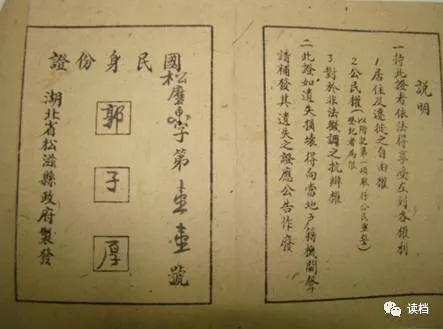 說明
一持此證者依法得享受左列各權利
1居住及遷徙之自由權
2公民權
3對於非法徵調之抗辯權
二此證如遺失損壞得向當地戶籍機關聲
請補發其遺失之證應公告作廢
國民身份證
松 字第壹壹號
郭子厚
湖北省松滋縣政府製發
读档